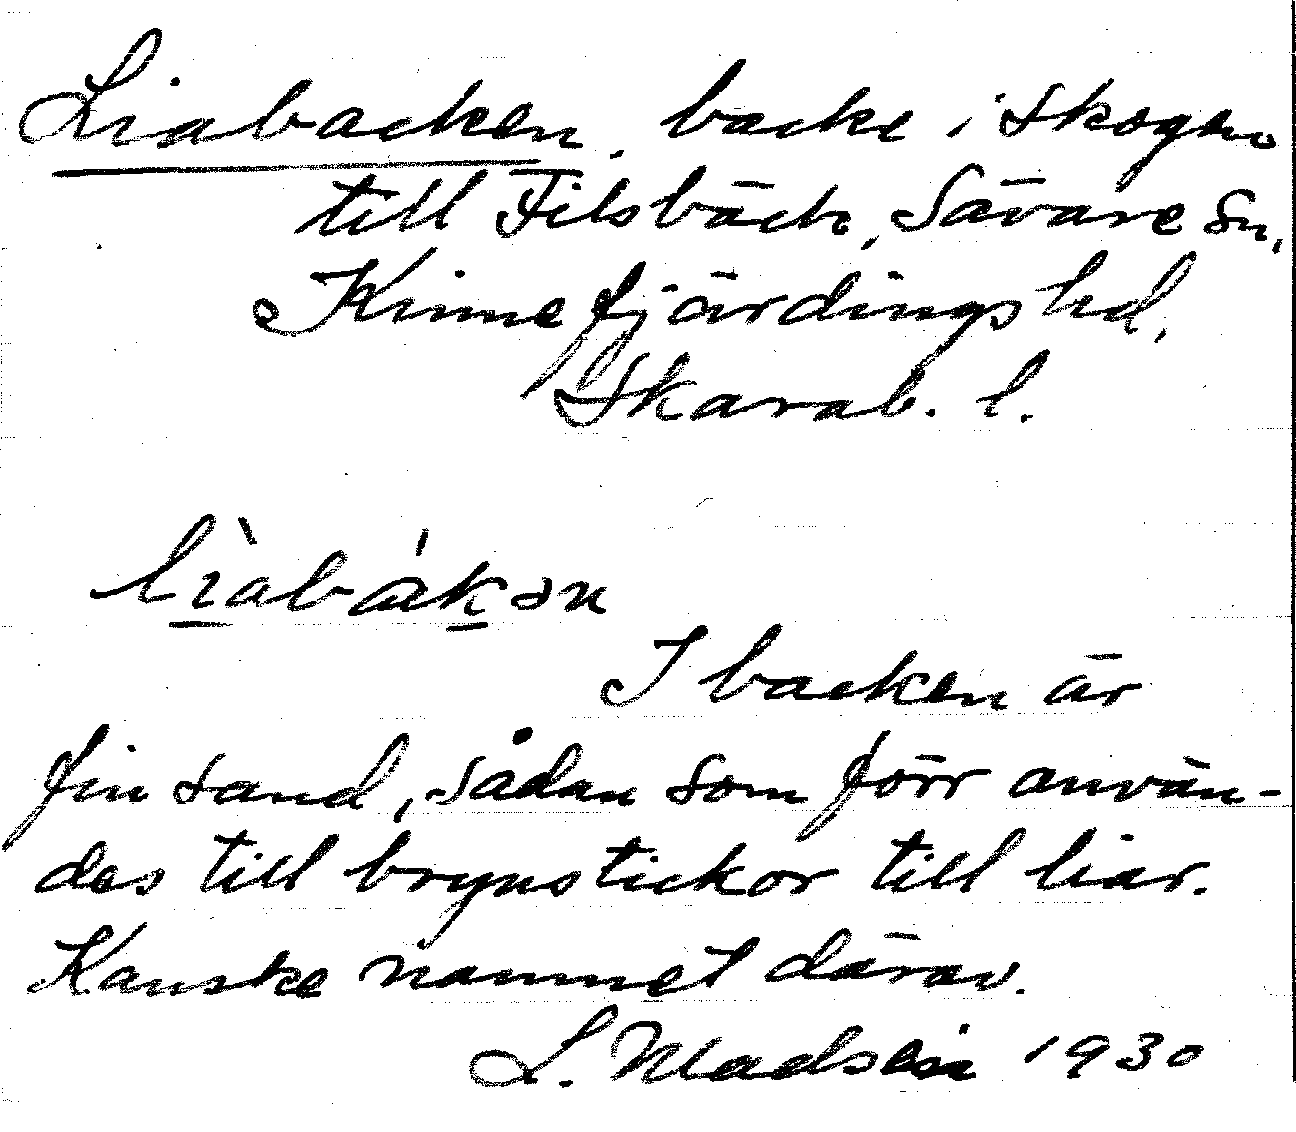 Liabacken, backe i skogen
till Filsbäck, Sävare sn,
Kinnefjärdings hd,
Skarab. l.
lìabák̠ən
I backen är
fin sand, sådan som förr använ-
des till brynstickor till liar.
Kanske namnet därav.
L. Madsén 1930